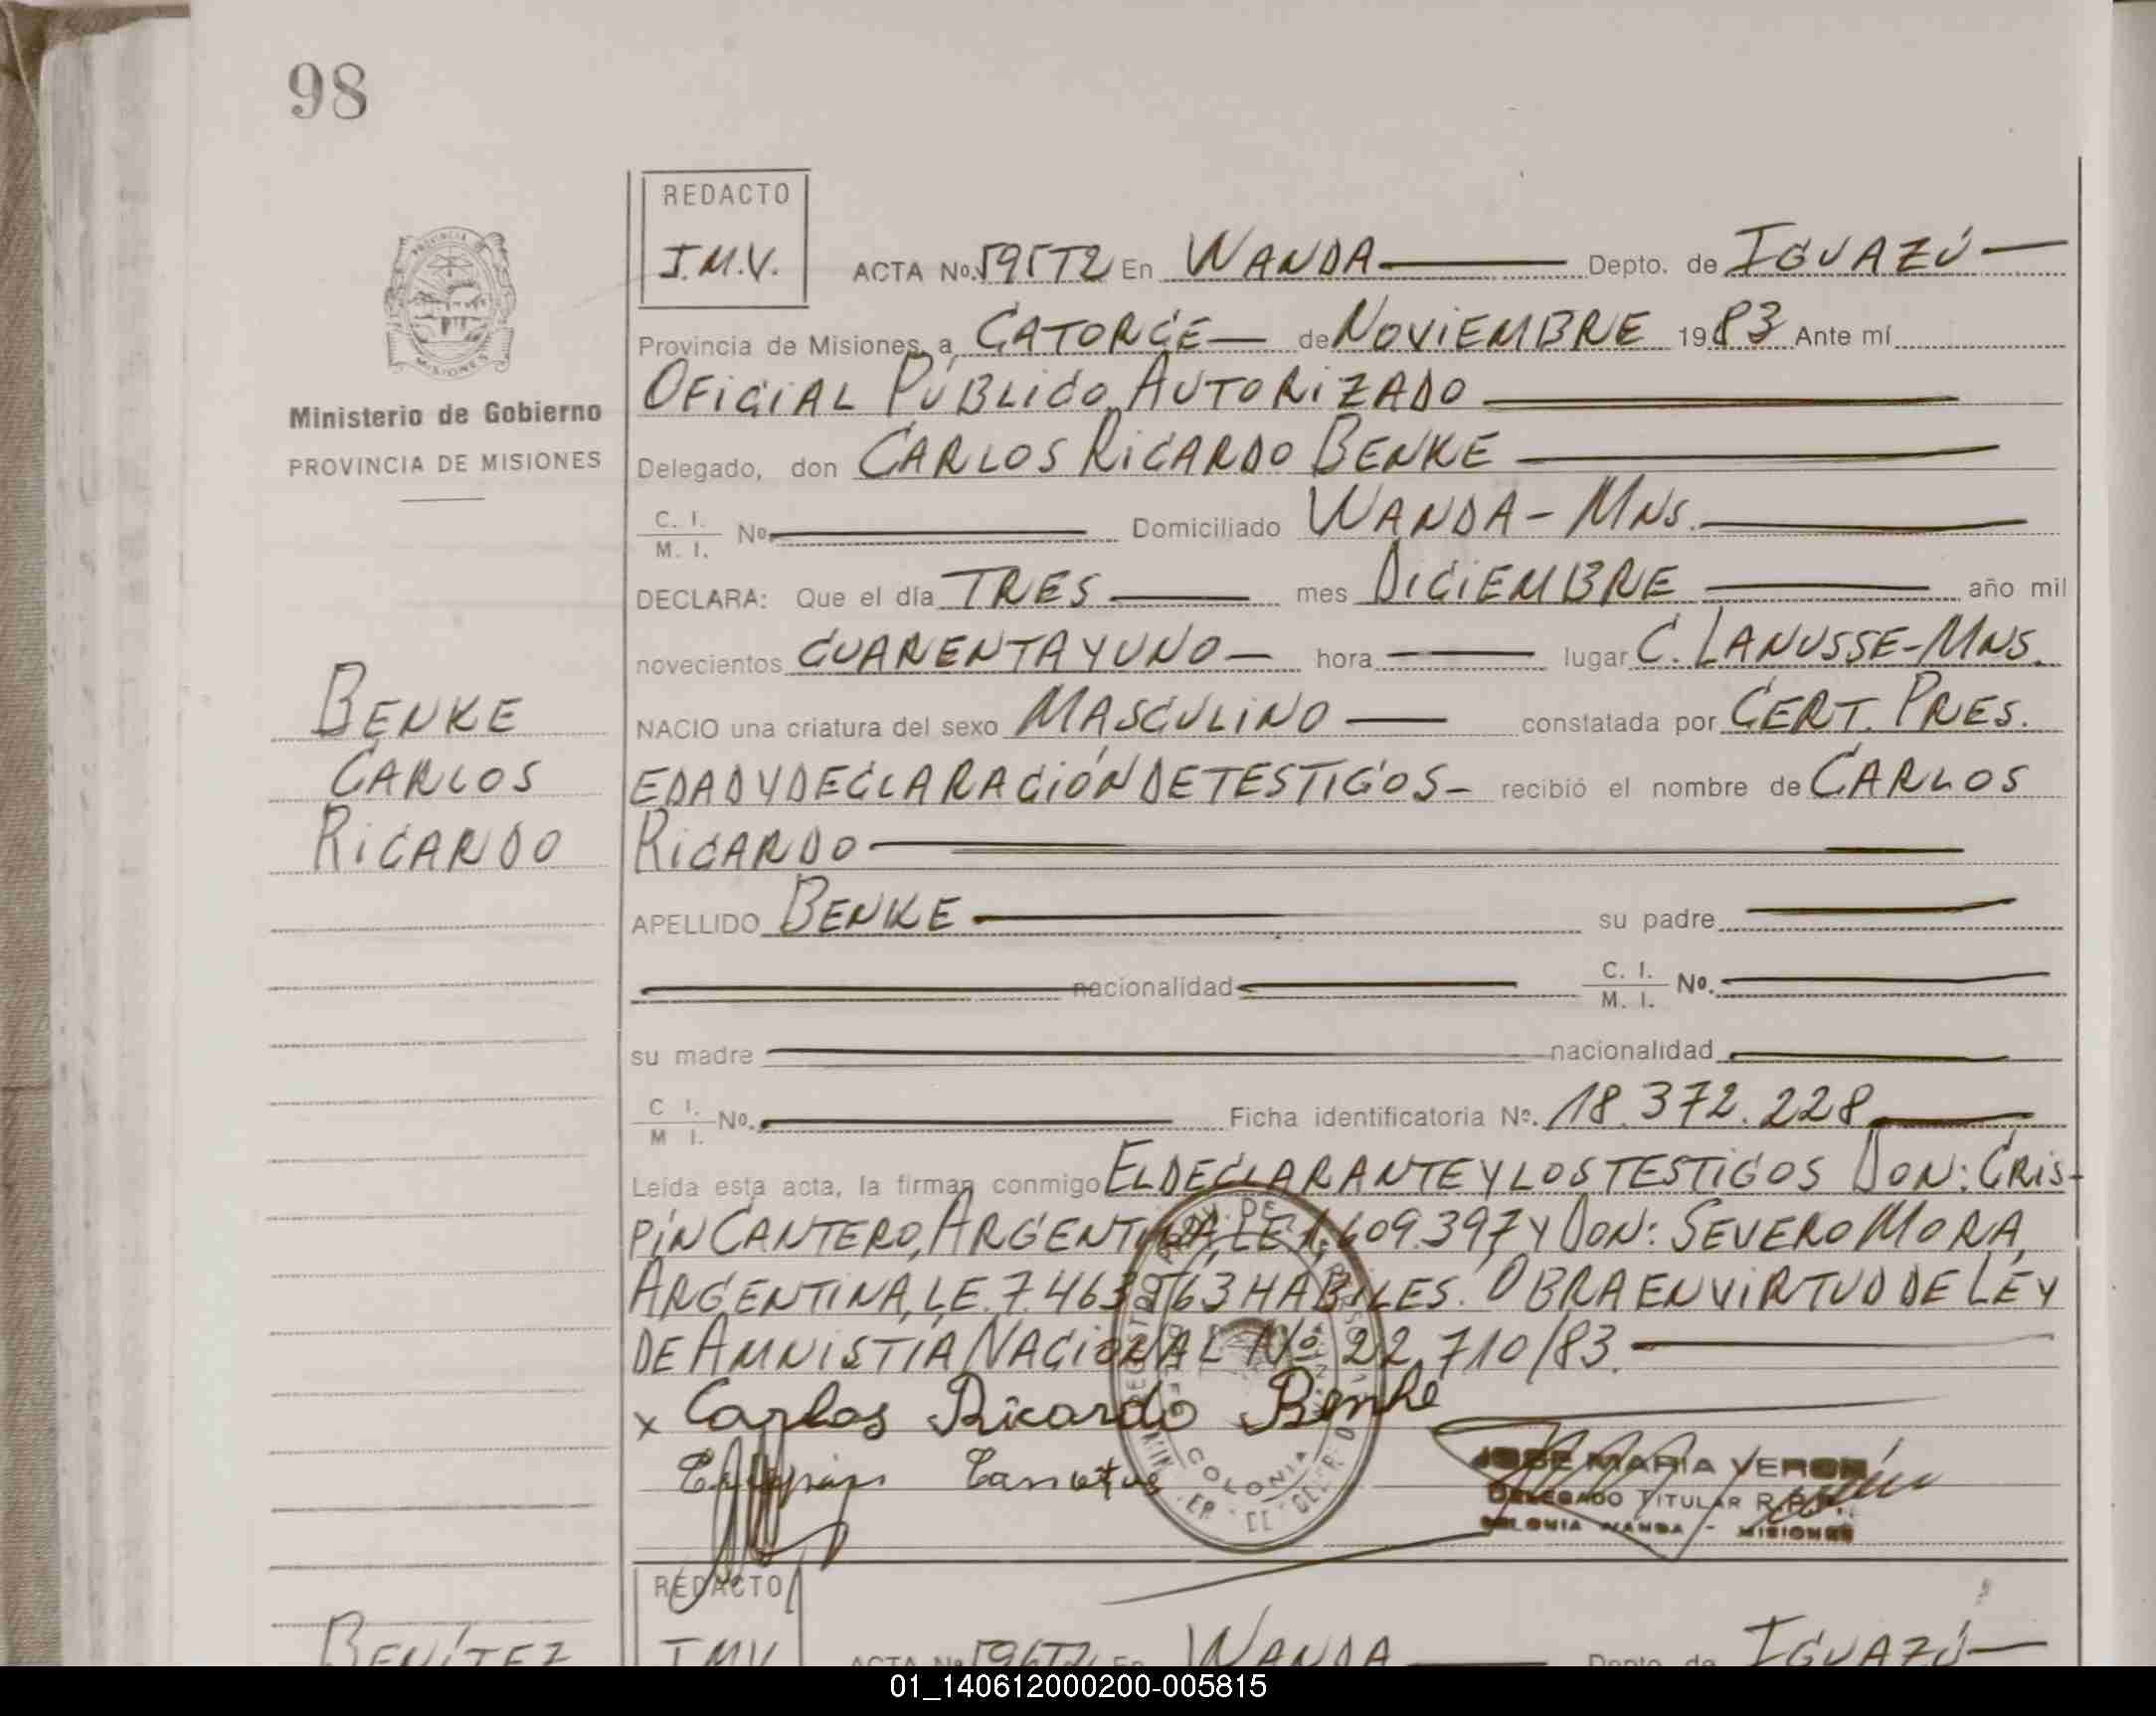 98
REDACTO
J.M.V.
ACTA No. 595T2 En WANDA Depto. de IGUAZÚ
Provincia de Misiones, a CATORCE de NOVIEMBRE 1983 Ante mí
OFICIAL PÚBLICO AUTORIZADO
Ministerio de Gobierno
PROVINCIA DE MISIONES
Delegado, don CARLOS RICARDO BENKE
C. I.
M. I. No. Domiciliado WANDA - MNS.
DECLARA: Que el día TRES mes DICIEMBRE año mil
novecientos CUARENTA Y UNO hora lugar C. LANUSSE - MNS.
BENKE
CARLOS
RICARDO
NACIO una criatura del sexo MASCULINO constatada por CERT. PRES.
EDAD Y DECLARACIÓN DE TESTIGOS - recibió el nombre de CARLOS
RICARDO
APELLIDO BENKE su padre
nacionalidad C. I.
M. I. No.
su madre nacionalidad
C I.
M I. No. Ficha identificatoria Nº. 18.372.228
Leída esta acta, la firman conmigo EL DECLARANTE Y LOS TESTIGOS DON: CRIS-
PÍN CANTERO, ARGENTINA, LE 1.609.397 Y DON: SEVERO MORA,
ARGENTINA, L.E. 7.463 HABILES. OBRA EN VIRTUD DE LEY
DE AMNISTÍA NACIONAL Nº 22.710/83.
x Carlos Ricardo Benke
COLONIA
JOSE MARIA VERON
DELEGADO TITULAR
COLONIA WANDA - MISIONES
REDACTO
BENÍTEZ
J.M.V.
ACTA No. 596T2 En WANDA Depto. de IGUAZÚ
01_140612000200-005815